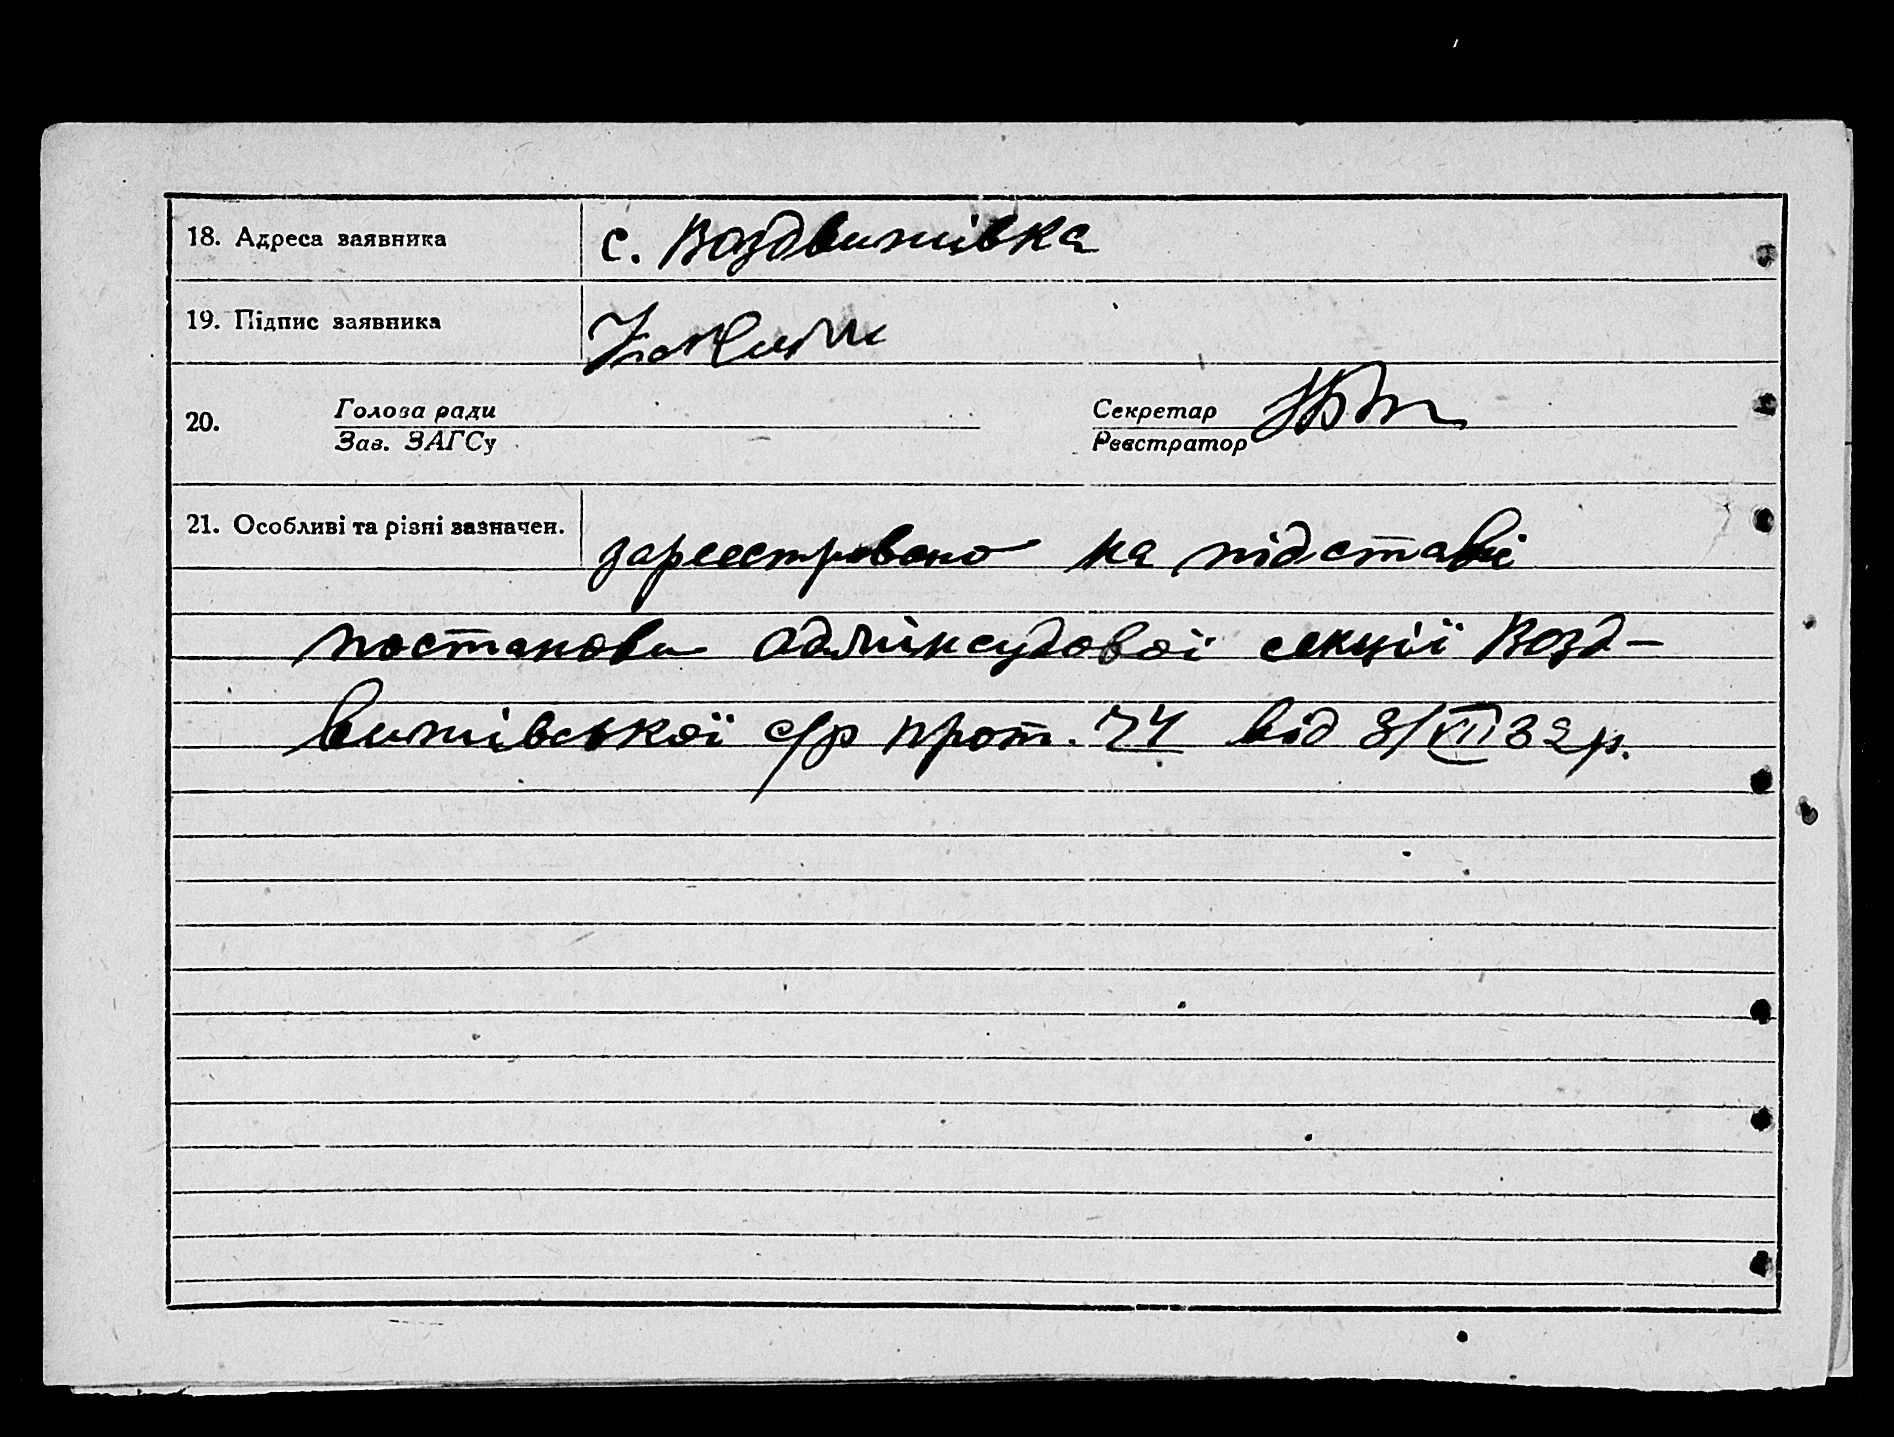 18. Адреса заявника с. Воздвижівка
19. Підпис заявника
20. Голова ради Секретар
Зав. ЗАГСу Реєстратор
21. Особливі та різні зазначен. зареєстровано на підставі
постанови адмінсудової секції Возд-
вижівської с/р прот. від 3/VII 32 р.